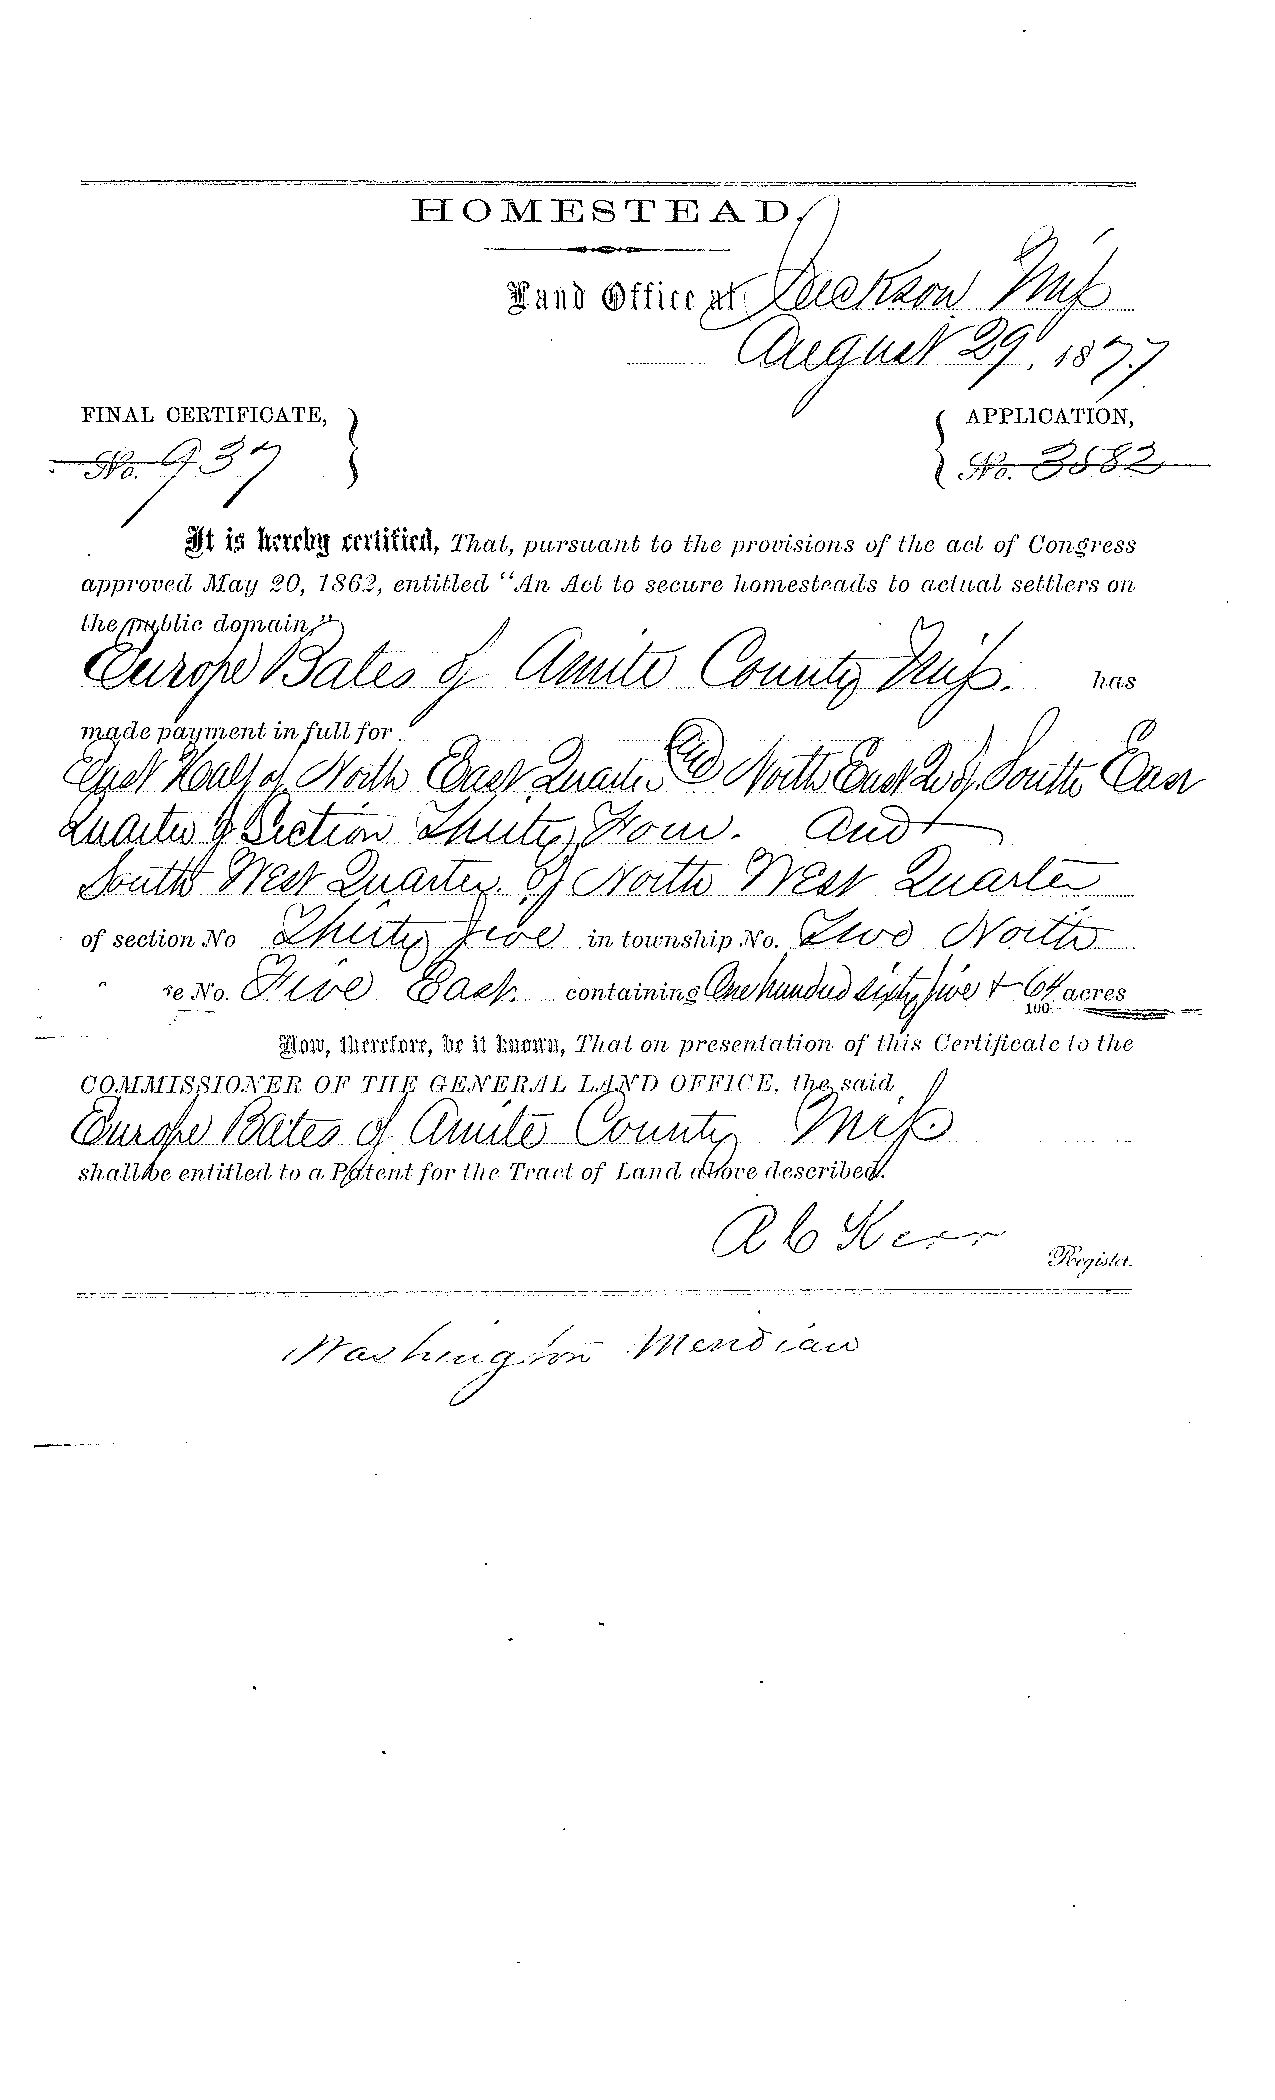 HOMESTEAD.
Land Office at Jackson Miss
August 29, 1877.
FINAL CERTIFICATE, APPLICATION,
No. 937 No. 3582
It is hereby certified, That, pursuant to the provisions of the act of Congress
approved May 20, 1862, entitled "An Act to secure homesteads to actual settlers on
the public domain,"
Europe Bates of Amite County Miss. has
made payment in full for
East Half of North East Quarter and North East Qr of South East
Quarter of Section Thirty Four. And
South West Quarter of North West Quarter
of section No Thirty five in township No. Two North
e No. Five East. containing One hundred sixty five + 64/100 acres
Now, therefore, be it known, That on presentation of this Certificate to the
COMMISSIONER OF THE GENERAL LAND OFFICE, the said
Europe Bates of Amite County Miss
shall be entitled to a Patent for the Tract of Land above described.
R C Kerr
Register.
Washington Meridian